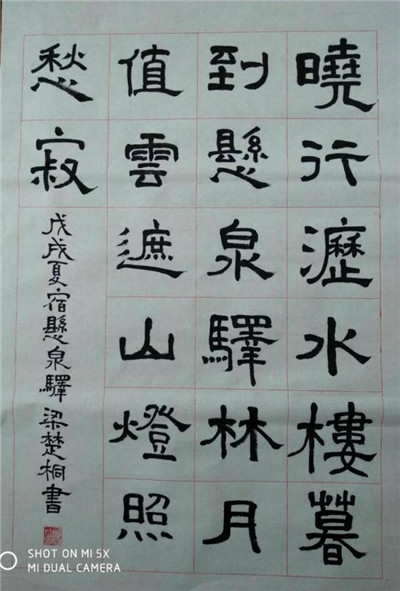 曉行瀝水樓暮
到懸泉驛林月
值雲遮山燈照
愁寂
戊戌夏宿懸泉驛梁楚桐書
SHOT ON MI 5X
MI DUAL CAMERA